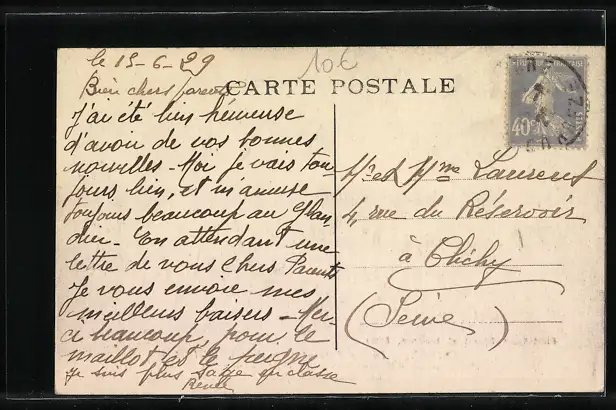 le 15-6-29
10€
CARTE POSTALE
Bien chers parents
J'ai été bien héureuse
d'avoir de vos bonnes
nouvelles - Moi je vais tou
jours bien, et m'amuse
toujours beaucoup au Glan
dier - En attendant une
lettre de vous Chers Parents
Je vous envoie mes
meilleurs baisers - Mer-
ci beaucoup, pour le
maillot et le peigne
je suis plus sage en classe
Renée
Mr et Mme Laurent
4, rue du Réservoir
à Clichy
(Seine)
40